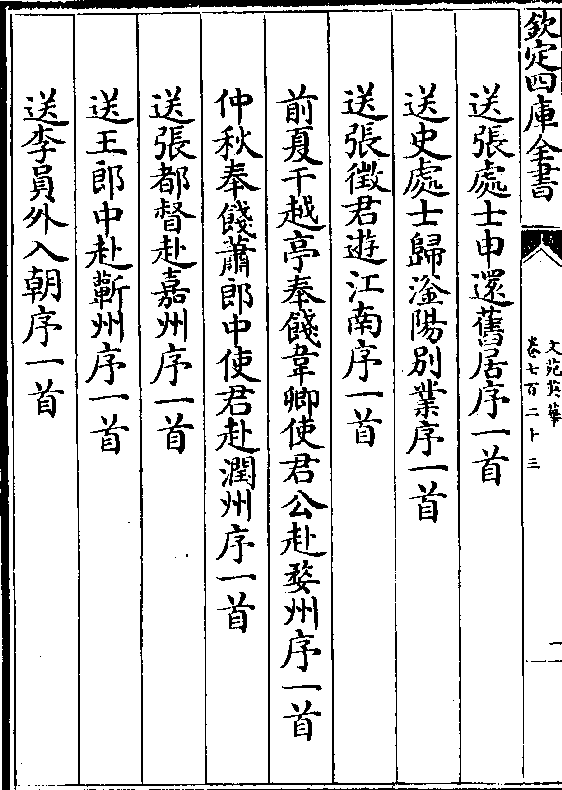 欽定四庫全書
文苑英華
卷七百二十三
一
送張處士申還舊居序一首
送史處士歸滏陽別業序一首
送張徵君遊江南序一首
前夏干越亭奉餞韋卿使君公赴婺州序一首
仲秋奉餞蕭郎中使君赴潤州序一首
送張都督赴嘉州序一首
送王郎中赴蘄州序一首
送李員外入朝序一首